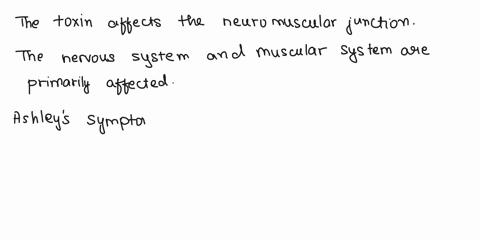 The toxin affects the neuromuscular junction.
The nervous system and muscular system are
primarily affected.
Ashley's sympto